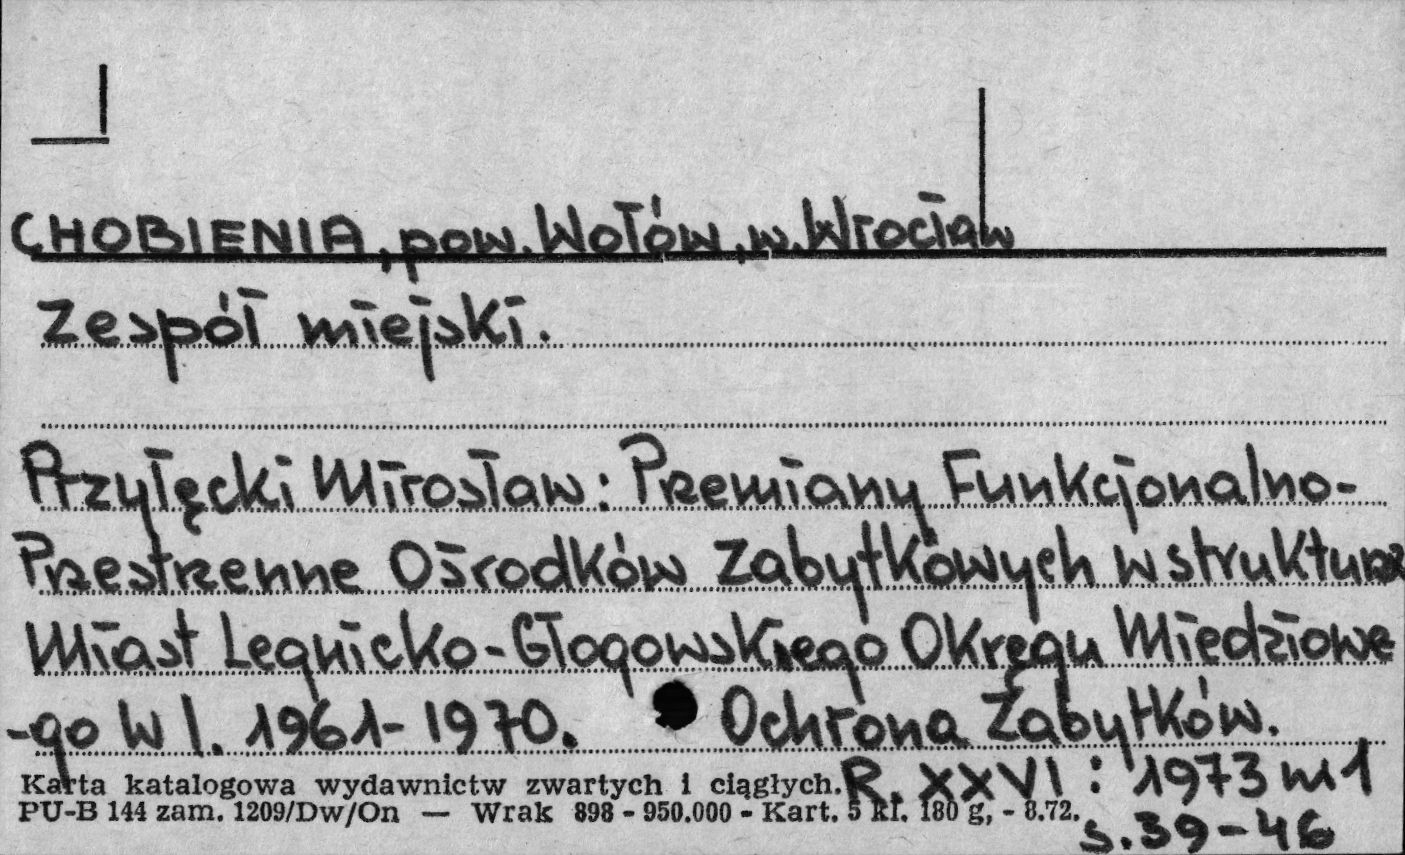 CHOBIENIA, pow. Wołów, w. Wrocław
Zespół miejski.
Przyłęcki Mirosław: Przemiany Funkcjonalno-
Przestrzenne Ośrodków Zabytkowych w strukturze
Miast Legnicko-Głogowskiego Okręgu Miedziowe
-go w l. 1961-1970. Ochrona Zabytków.
R. XXVI: 1973 nr 1
s. 39-46
Karta katalogowa wydawnictw zwartych i ciągłych.
PU-B 144 zam. 1209/Dw/On — Wrak 898 - 950.000 - Kart. 5 kl. 180 g, - 8.72.